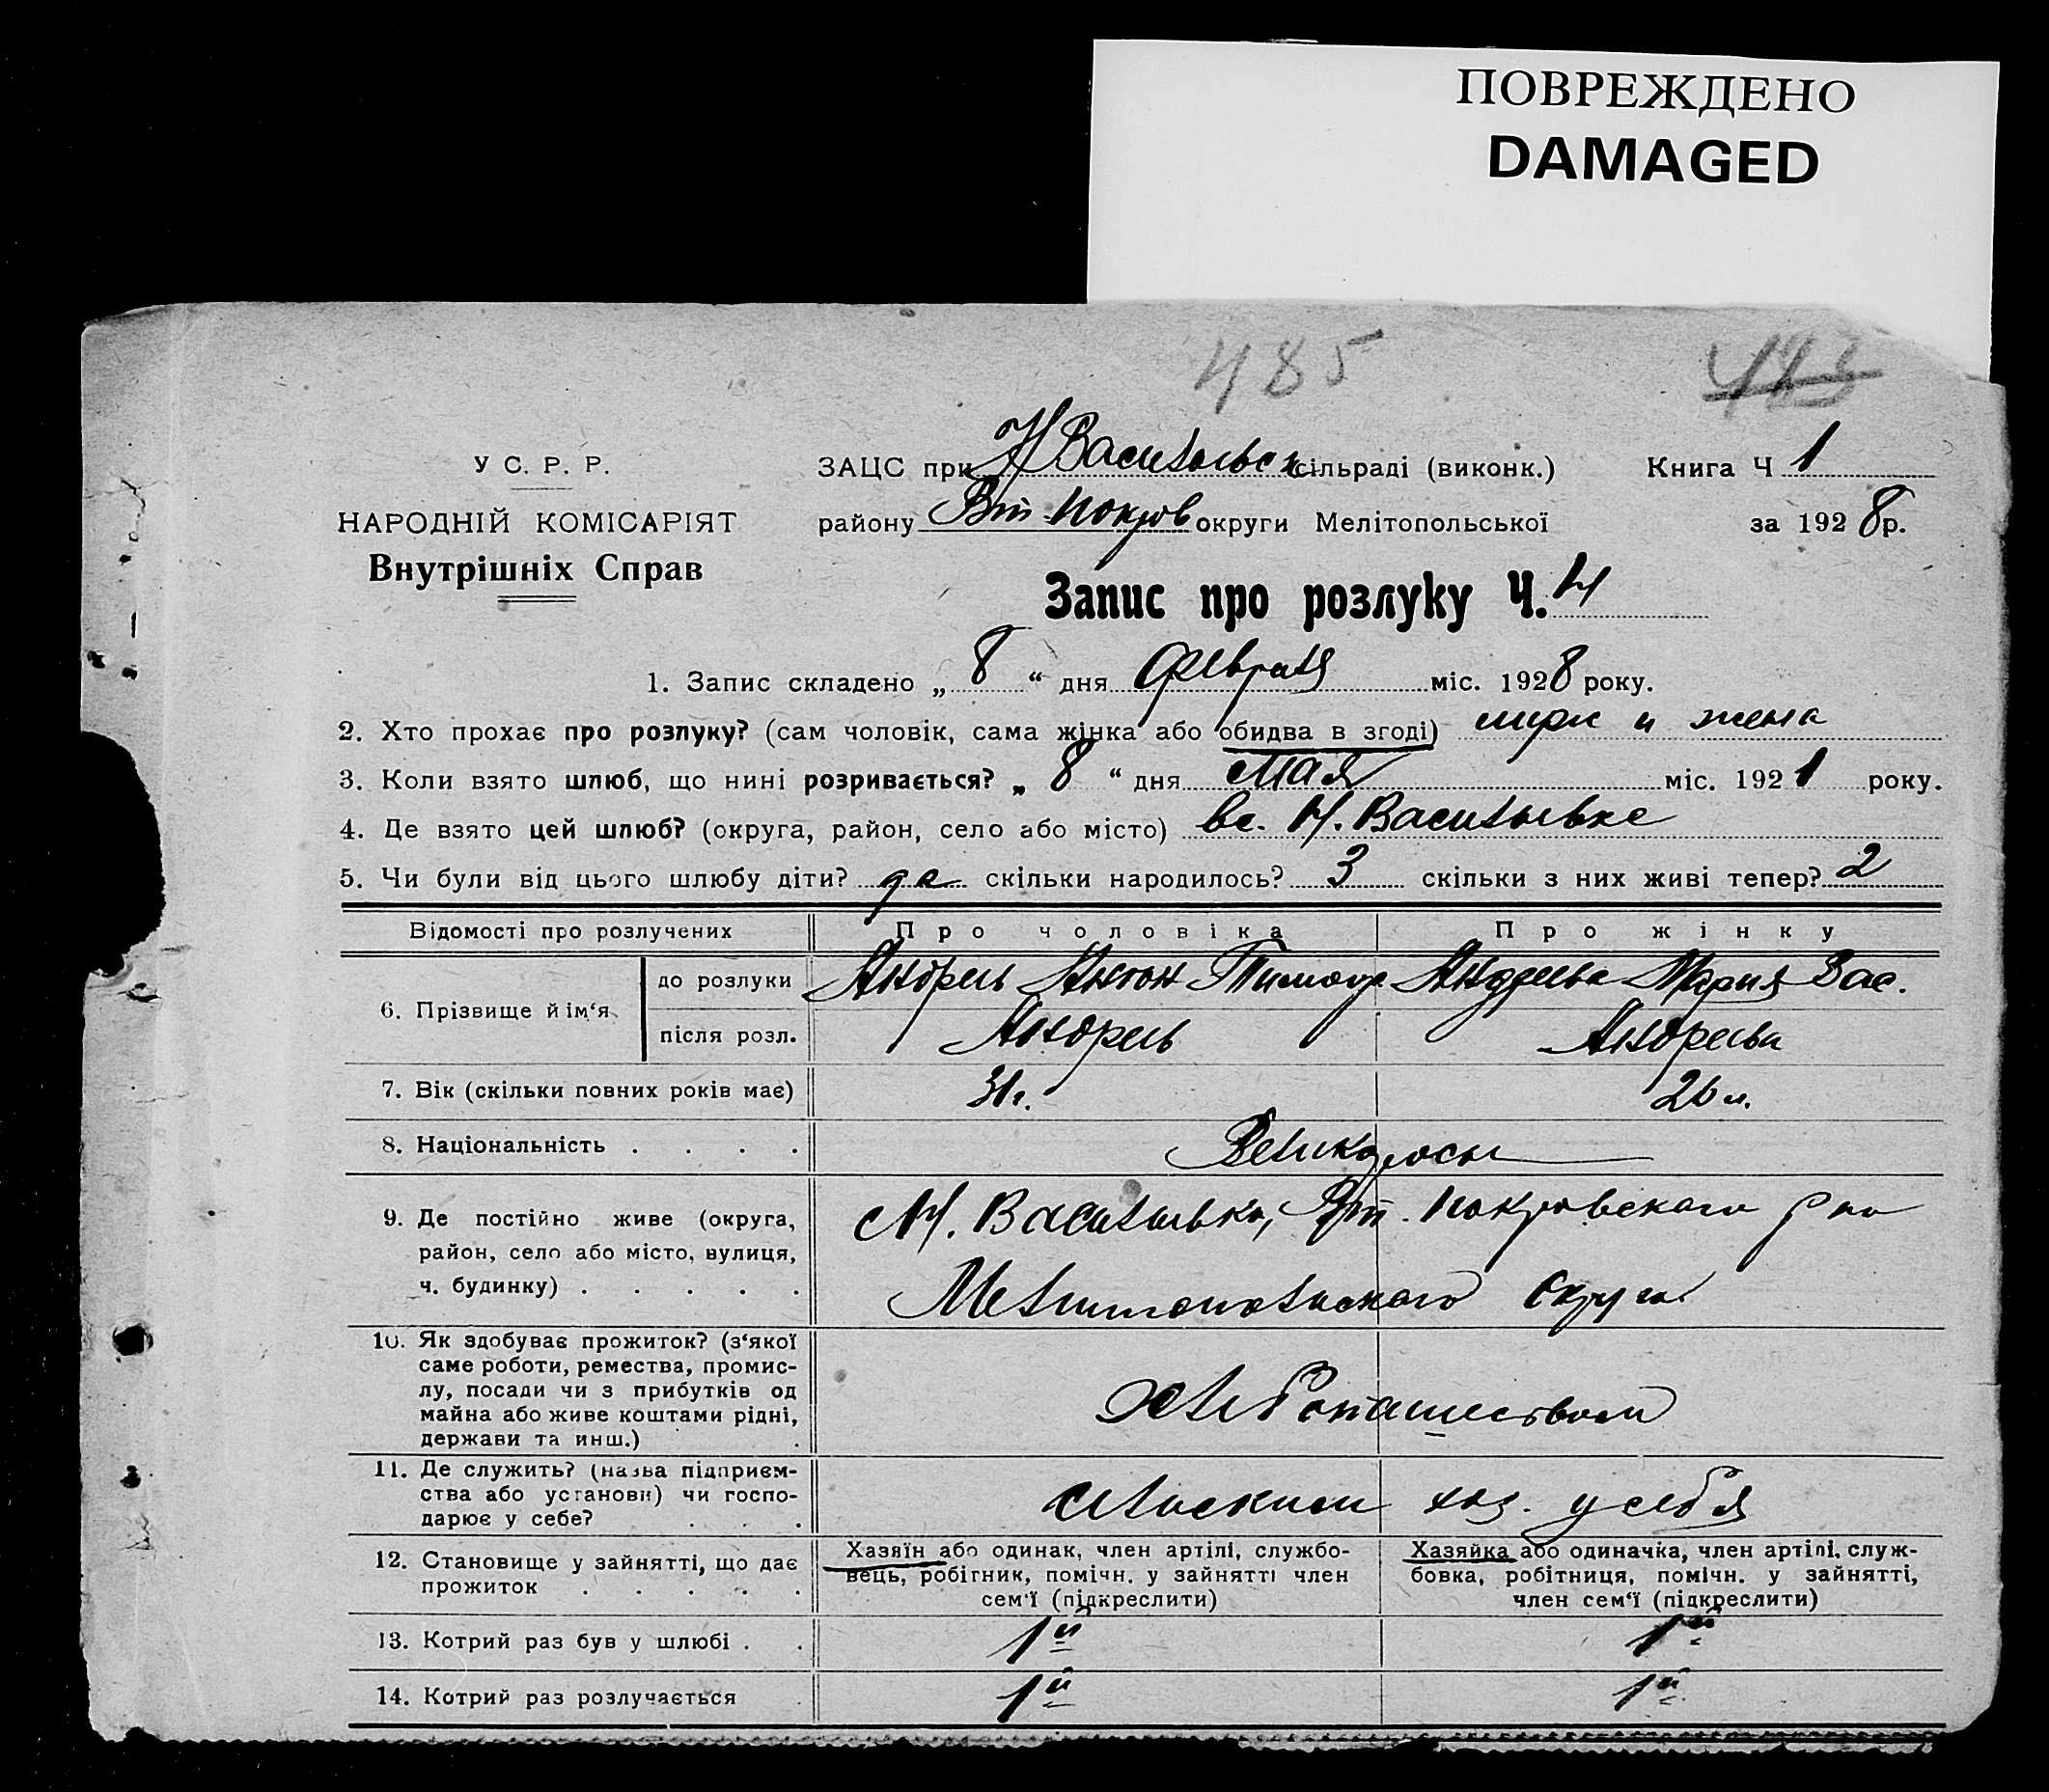 ПОВРЕЖДЕНО
DAMAGED
485
У С. Р. Р.
НАРОДНІЙ КОМІСАРІЯТ
Внутрішніх Справ
ЗАЦС при Н Васильевск сільраді (виконк.) Книга Ч 1
району Вт-Покров округи Мелітопольської за 1928 р.
Запис про розлуку Ч. 4
1. Запис складено „ 8 “ дня февраля міс. 1928 року.
2. Хто прохає про розлуку? (сам чоловік, сама жінка або обидва в згоді) муж и жена
3. Коли взято шлюб, що нині розривається? „ 8 “ дня мая міс. 1921 року.
4. Де взято цей шлюб? (округа, район, село або місто) в с. Н. Васильевке
5. Чи були від цього шлюбу діти? да скільки народилось? 3 скільки з них живі тепер? 2
Відомості про розлучених Про чоловіка Про жінку
6. Прізвище й ім‘я
до розлуки Андреев Антон Тимоф Андреева Мария Вас.
після розл. Андреев Андреева
7. Вік (скільки повних років має) 31 г. 26 л.
8. Національність . . . . Великоросы
9. Де постійно живе (округа, район, село або місто, вулиця, ч. будинку) . . . . .
Н. Васильевка, Вт. Покровского р на
Мелитопольского округа
10. Як здобуває прожиток? (з‘якої
саме роботи, ремества, промис-
лу, посади чи з прибутків од
майна або живе коштами рідні,
держави та инш.) .
Хлебопашеством
11. Де служить? (назва підприєм-
ства або установи) чи госпо-
дарює у себе? . . .
сельским хоз. у себя
12. Становище у зайнятті, що дає
прожиток . . . . .
Хазяїн або одинак, член артілі, службо-
вець, робітник, помічн. у зайнятті член
сем‘ї (підкреслити)
Хазяйка або одиначка, член артілі, служ-
бовка, робітниця, помічн. у зайнятті,
член сем‘ї (підкреслити)
13. Котрий раз був у шлюбі . . 1й 1й
14. Котрий раз розлучається . 1й 1й